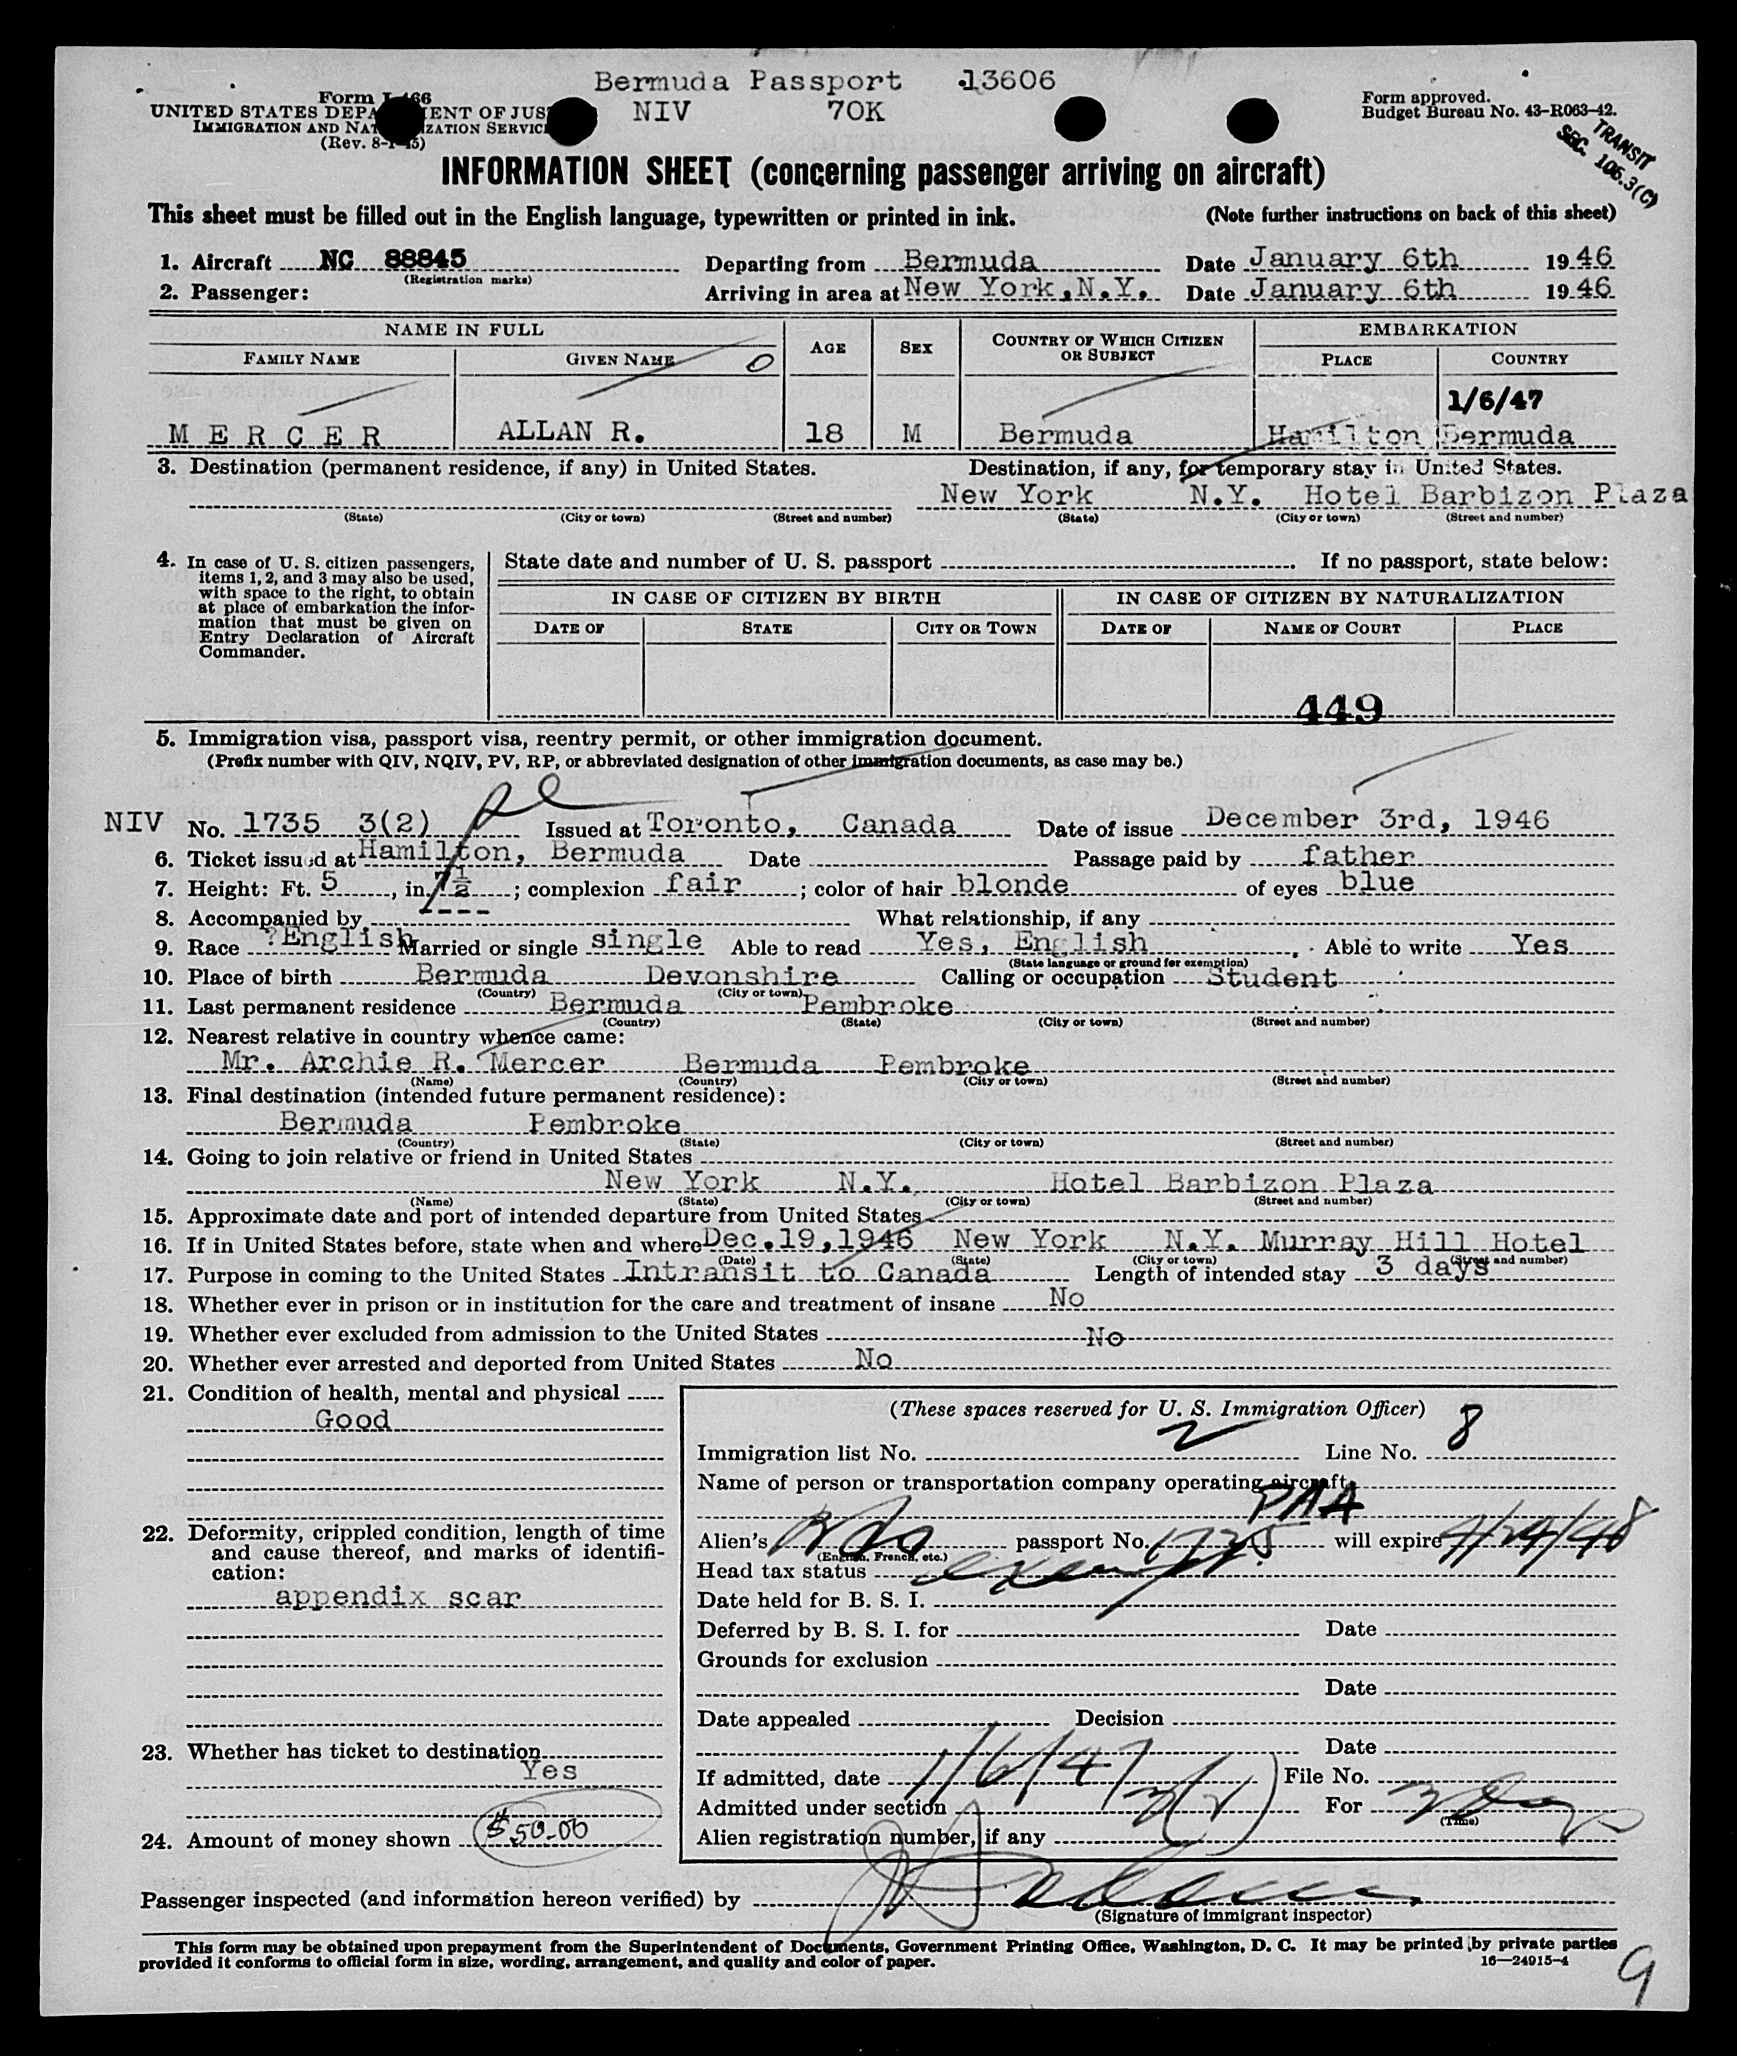 Bermuda Passport 13606
NIV 70K
Form I-466
UNITED STATES DEPARTMENT OF JUSTICE
IMMIGRATION AND NATURALIZATION SERVICE
(Rev. 8-1-45)
Form approved.
Budget Bureau No. 43-R063-42.
TRANSIT
SEC. 106.3(C)
INFORMATION SHEET (concerning passenger arriving on aircraft)
This sheet must be filled out in the English language, typewritten or printed in ink. (Note further instructions on back of this sheet)
1. Aircraft NC 88845 Departing from Bermuda Date January 6th 1946
(Registration marks)
2. Passenger: Arriving in area at New York, N.Y. Date January 6th 1946
NAME IN FULL AGE SEX COUNTRY OF WHICH CITIZEN OR SUBJECT EMBARKATION
FAMILY NAME GIVEN NAME PLACE COUNTRY
0
1/6/47
MERCER ALLAN R. 18 M Bermuda Hamilton Bermuda
3. Destination (permanent residence, if any) in United States. Destination, if any, for temporary stay in United States.
New York N.Y. Hotel Barbizon Plaza
(State) (City or town) (Street and number) (State) (City or town) (Street and number)
4. In case of U. S. citizen passengers, items 1, 2, and 3 may also be used, with space to the right, to obtain at place of embarkation the information that must be given on Entry Declaration of Aircraft Commander.
State date and number of U. S. passport . If no passport, state below:
IN CASE OF CITIZEN BY BIRTH IN CASE OF CITIZEN BY NATURALIZATION
DATE OF STATE CITY OR TOWN DATE OF NAME OF COURT PLACE
449
5. Immigration visa, passport visa, reentry permit, or other immigration document.
(Prefix number with QIV, NQIV, PV, RP, or abbreviated designation of other immigration documents, as case may be.)
NIV No. 1735 3(2) Issued at Toronto, Canada Date of issue December 3rd, 1946
6. Ticket issued at Hamilton, Bermuda Date Passage paid by father
7. Height: Ft. 5, in. 7½; complexion fair; color of hair blonde of eyes blue
8. Accompanied by What relationship, if any
9. Race ?English Married or single single Able to read Yes, English. Able to write Yes
(State language or ground for exemption)
10. Place of birth Bermuda Devonshire Calling or occupation Student
(Country) (City or town)
11. Last permanent residence Bermuda Pembroke
(Country) (State) (City or town) (Street and number)
12. Nearest relative in country whence came:
Mr. Archie R. Mercer Bermuda Pembroke
(Name) (Country) (City or town) (Street and number)
13. Final destination (intended future permanent residence):
Bermuda Pembroke
(Country) (State) (City or town) (Street and number)
14. Going to join relative or friend in United States
New York N.Y. Hotel Barbizon Plaza
(Name) (State) (City or town) (Street and number)
15. Approximate date and port of intended departure from United States
16. If in United States before, state when and where Dec. 19, 1946 New York N.Y. Murray Hill Hotel
(Date) (State) (City or town) (Street and number)
17. Purpose in coming to the United States Intransit to Canada Length of intended stay 3 days
18. Whether ever in prison or in institution for the care and treatment of insane No
19. Whether ever excluded from admission to the United States No
20. Whether ever arrested and deported from United States No
21. Condition of health, mental and physical
Good
22. Deformity, crippled condition, length of time and cause thereof, and marks of identification:
appendix scar
23. Whether has ticket to destination
Yes
24. Amount of money shown $50.00
(These spaces reserved for U. S. Immigration Officer)
Immigration list No. 2 Line No. 8
Name of person or transportation company operating aircraft
PAA
Alien's passport No. 1735 will expire 4/24/48
(English, French, etc.)
Head tax status exempt
Date held for B. S. I.
Deferred by B. S. I. for Date
Grounds for exclusion
Date
Date appealed Decision
Date
If admitted, date 1/6/47 File No.
Admitted under section 3(2) For 3 Days
(Time)
Alien registration number, if any
Passenger inspected (and information hereon verified) by
(Signature of immigrant inspector)
This form may be obtained upon prepayment from the Superintendent of Documents, Government Printing Office, Washington, D. C. It may be printed by private parties
provided it conforms to official form in size, wording, arrangement, and quality and color of paper. 16—24915-4
9